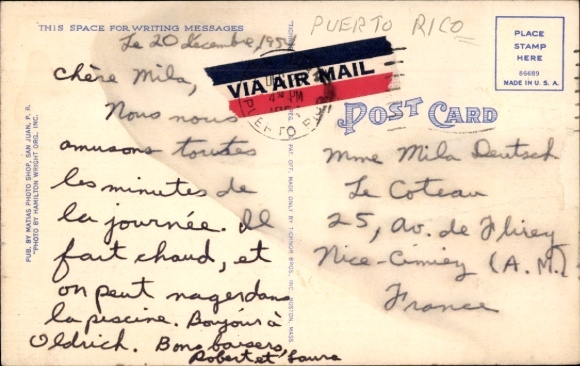 THIS SPACE FOR WRITING MESSAGES
Le 20 decembre, 1951
Chère Mila,
Nous nous
amusons toutes
les minutes de
la journée. Il
fait chaud, et
on peut nager dans
la piscine. Bonjour à
Oldrich. Bons baisers,
Robert et Laura
PUB. BY MATIAS PHOTO SHOP, SAN JUAN, P. R.
"PHOTO BY HAMILTON WRIGHT ORG. INC.
PAT. OFF. MADE ONLY BY TICHNOR BROS., INC., BOSTON, MASS.
PUERTO RICO
VIA AIR MAIL
PM
PLACE
STAMP
HERE
66689
MADE IN U. S. A.
POST CARD
Mme Mila Deutsch
Le Coteau
25, av. de Flirey
Nice-Cimiez (A.M.)
France